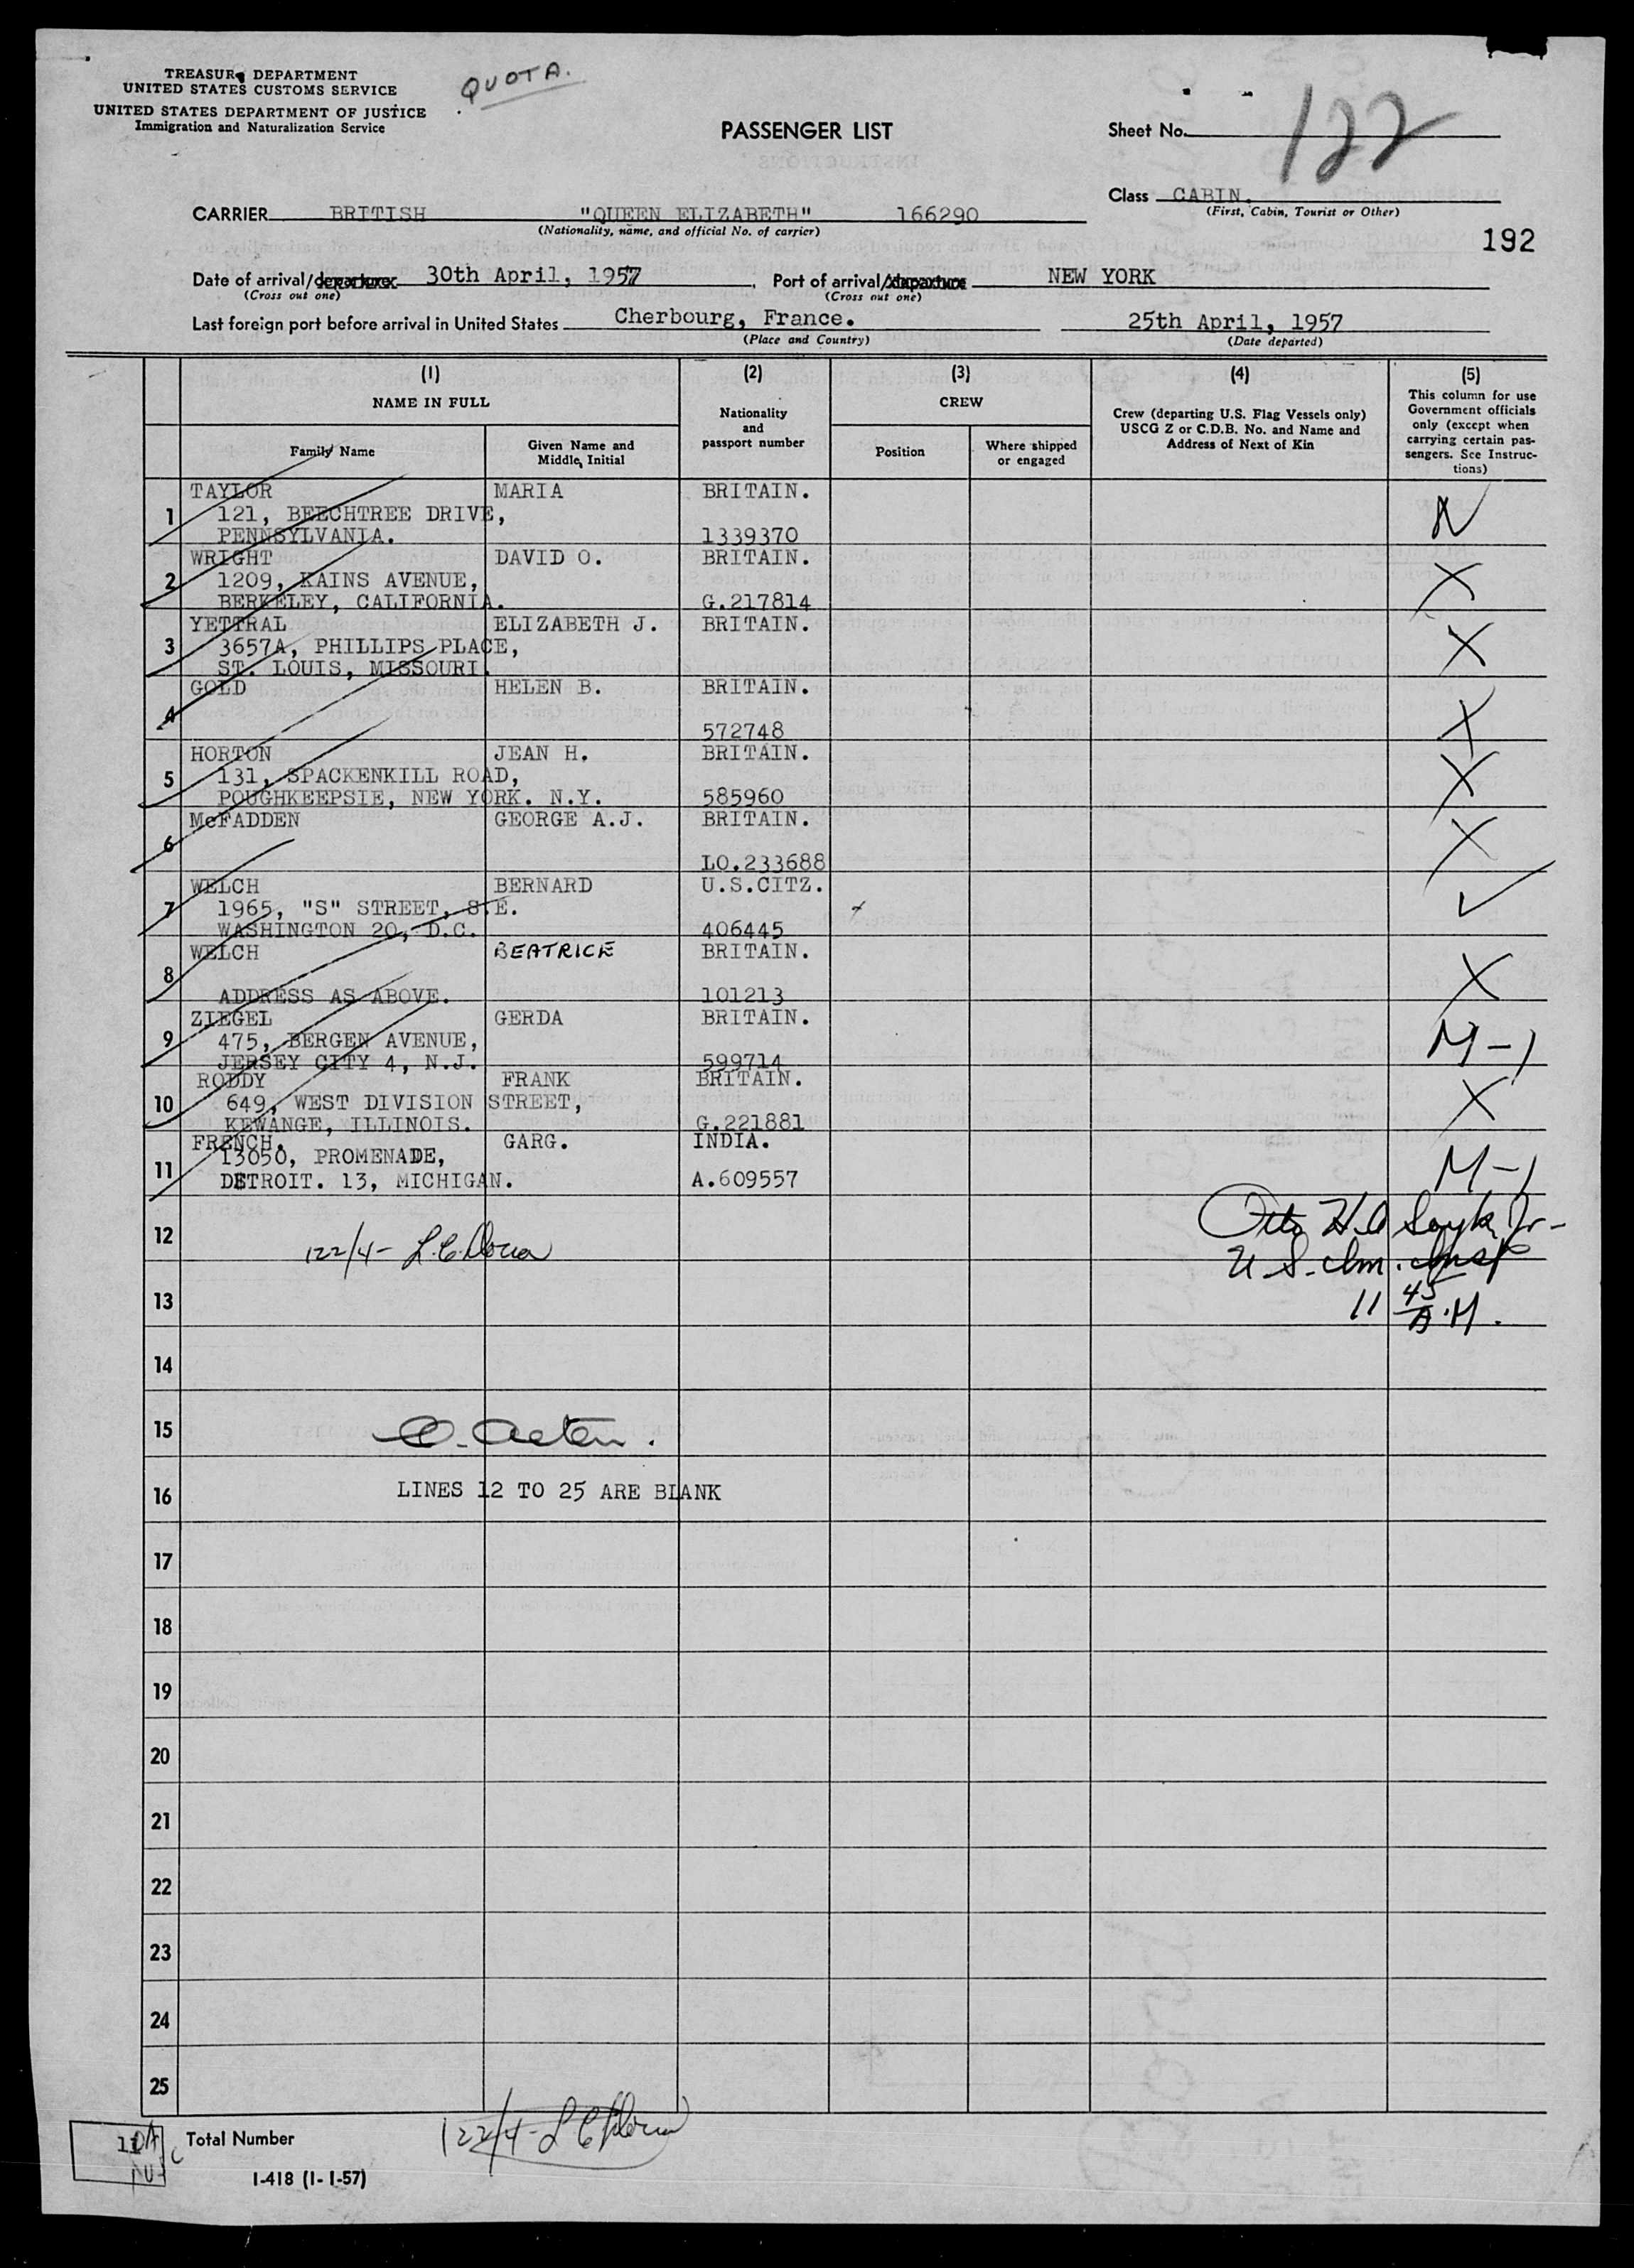 TREASURY DEPARTMENT
UNITED STATES CUSTOMS SERVICE
UNITED STATES DEPARTMENT OF JUSTICE
Immigration and Naturalization Service
QUOTA.
PASSENGER LIST
Sheet No. 122
Class CABIN.
(First, Cabin, Tourist or Other)
CARRIER BRITISH "QUEEN ELIZABETH" 166290
(Nationality, name, and official No. of carrier)
192
Date of arrival/departure 30th April, 1957, Port of arrival/departure NEW YORK
(Cross out one) (Cross out one)
Last foreign port before arrival in United States Cherbourg, France. 25th April, 1957
(Place and Country) (Date departed)
(1) (2) (3) (4) (5)
NAME IN FULL
Nationality and passport number
CREW
Crew (departing U.S. Flag Vessels only) USCG Z or C.D.B. No. and Name and Address of Next of Kin
This column for use Government officials only (except when carrying certain passengers. See Instructions)
Family Name
Given Name and Middle Initial
Position
Where shipped or engaged
1 TAYLOR MARIA BRITAIN. N
121, BEECHTREE DRIVE,
PENNSYLVANIA. 1339370
2 WRIGHT DAVID O. BRITAIN. X
1209, KAINS AVENUE,
BERKELEY, CALIFORNIA. G.217814
3 YETTRAL ELIZABETH J. BRITAIN. X
3657A, PHILLIPS PLACE,
ST. LOUIS, MISSOURI.
4 GOLD HELEN B. BRITAIN. X
572748
5 HORTON JEAN H. BRITAIN. X
131, SPACKENKILL ROAD,
POUGHKEEPSIE, NEW YORK. N.Y. 585960
6 McFADDEN GEORGE A.J. BRITAIN. X
LO.233688
7 WELCH BERNARD U.S.CITZ. ✓
1965, "S" STREET, S.E.
WASHINGTON 20, D.C. 406445
8 WELCH BEATRICE BRITAIN. X
ADDRESS AS ABOVE. 101213
9 ZIEGEL GERDA BRITAIN. M-1
475, BERGEN AVENUE,
JERSEY CITY 4, N.J. 599714
10 RODDY FRANK BRITAIN. X
649, WEST DIVISION STREET,
KEWANGE, ILLINOIS. G.221881
11 FRENCH. GARG. INDIA. M-1
13050, PROMENADE,
DETROIT. 13, MICHIGAN. A.609557
12
122/4-
U.S. Im. Insp
13
11 45 A.M.
14
15
16 LINES 12 TO 25 ARE BLANK
17
18
19
20
21
22
23
24
25
11
Total Number
122/4-
I-418 (1-1-57)